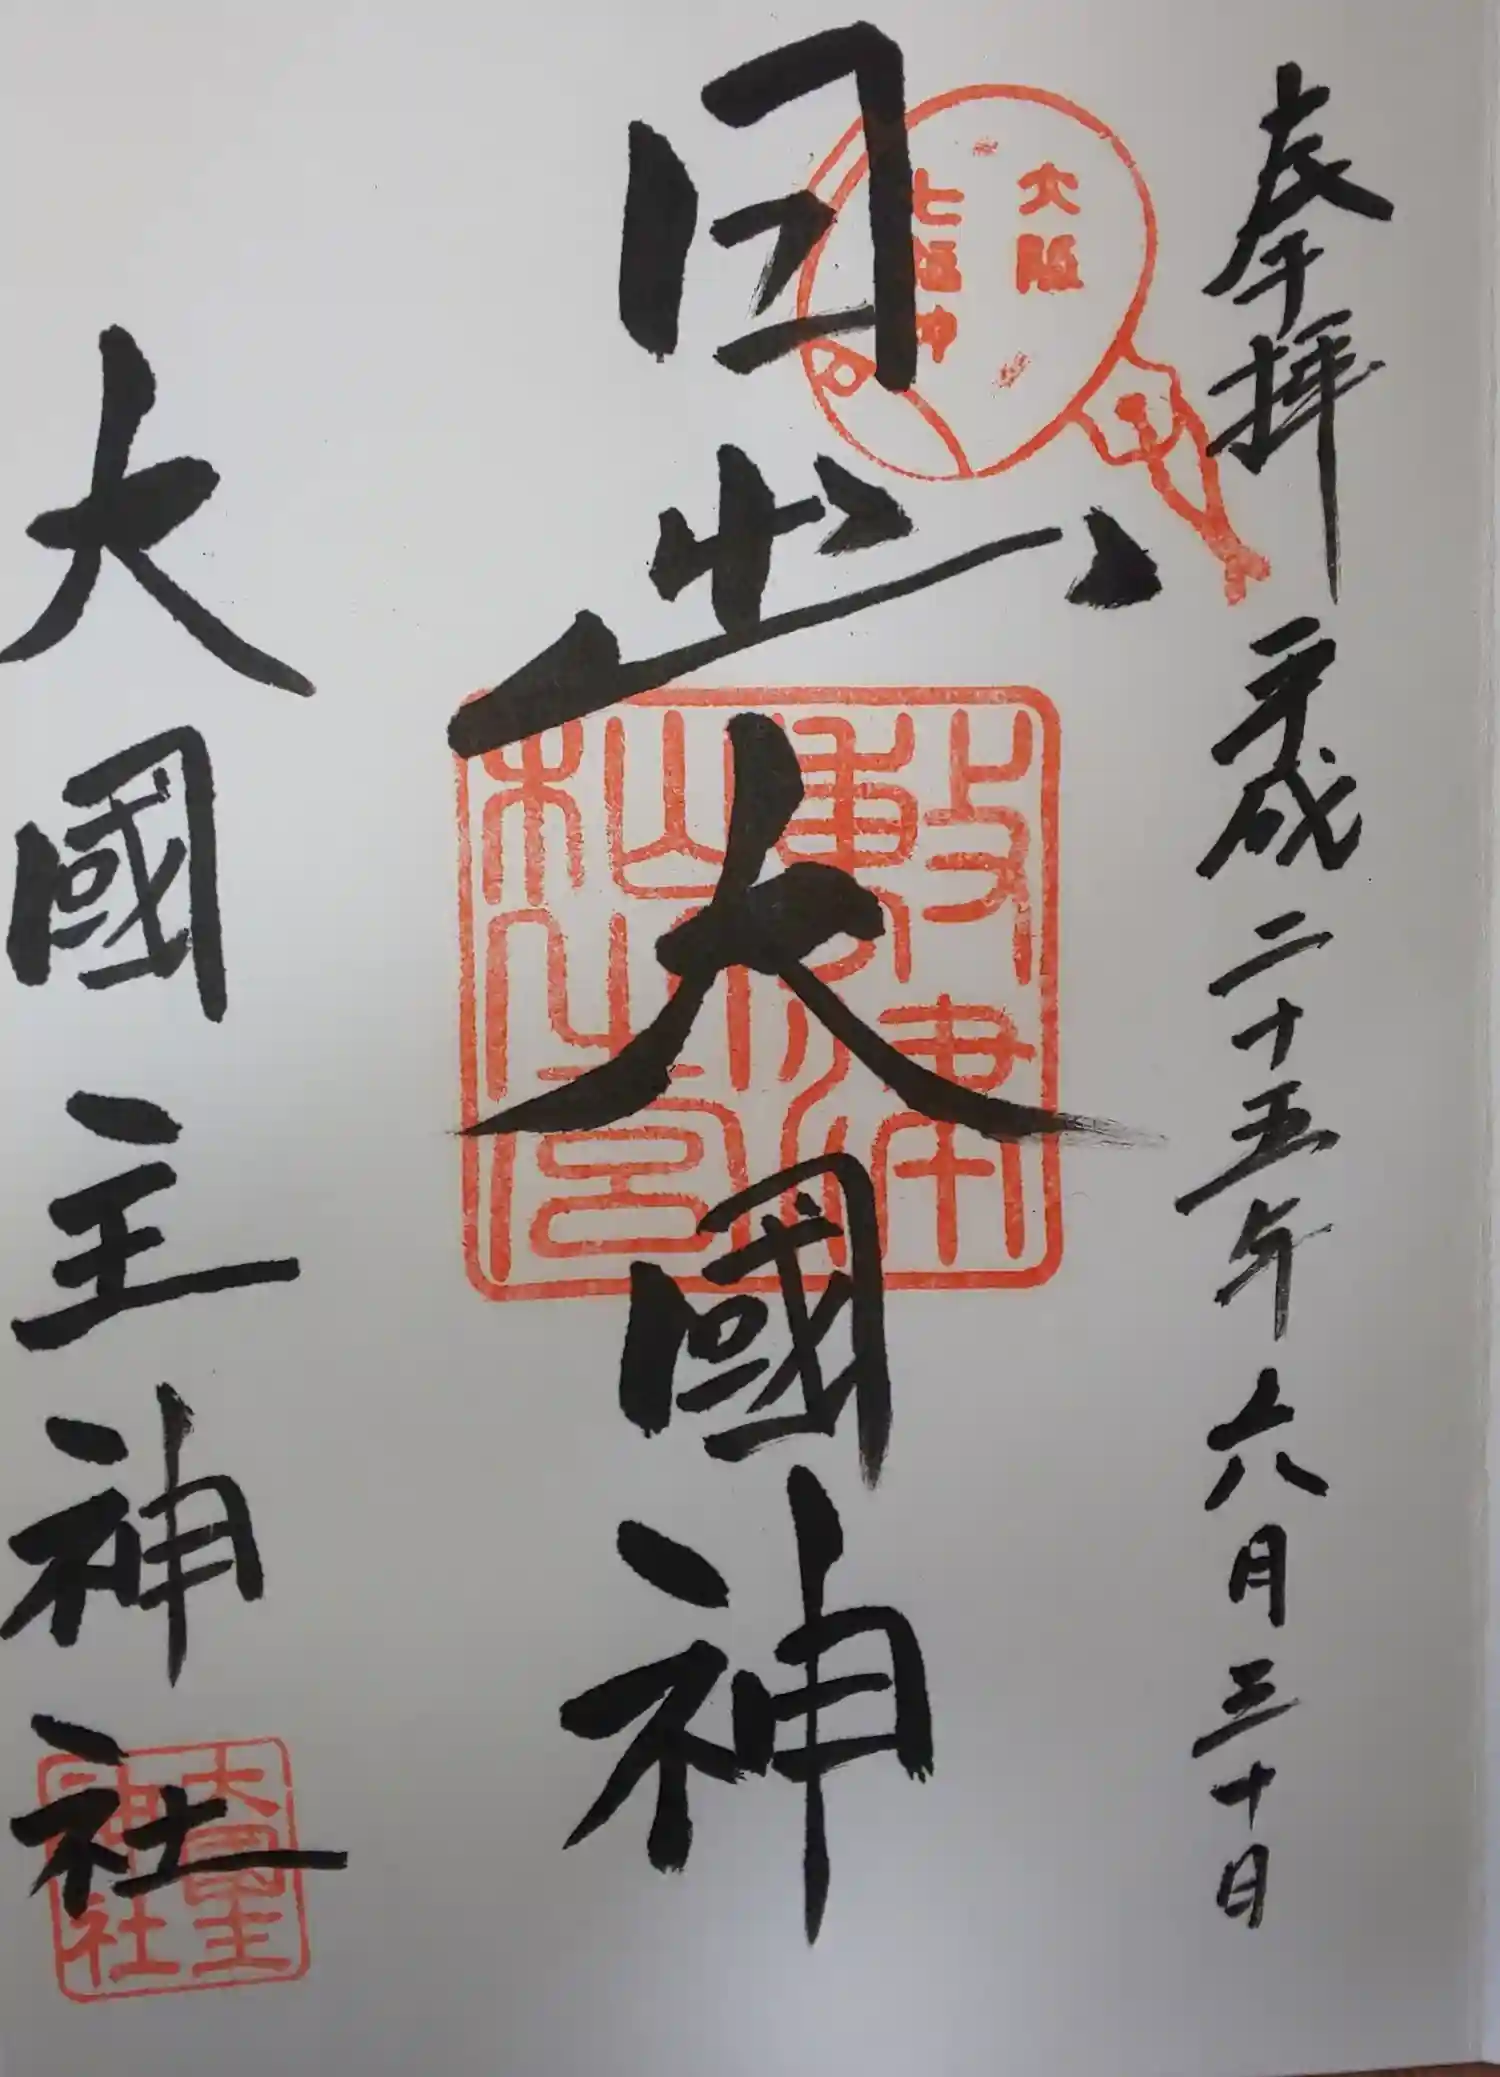 奉拝 平成二十五年六月三十日
大阪
七福神
日出大國神
敷津
松之宮
大國主神社
大國主
神社